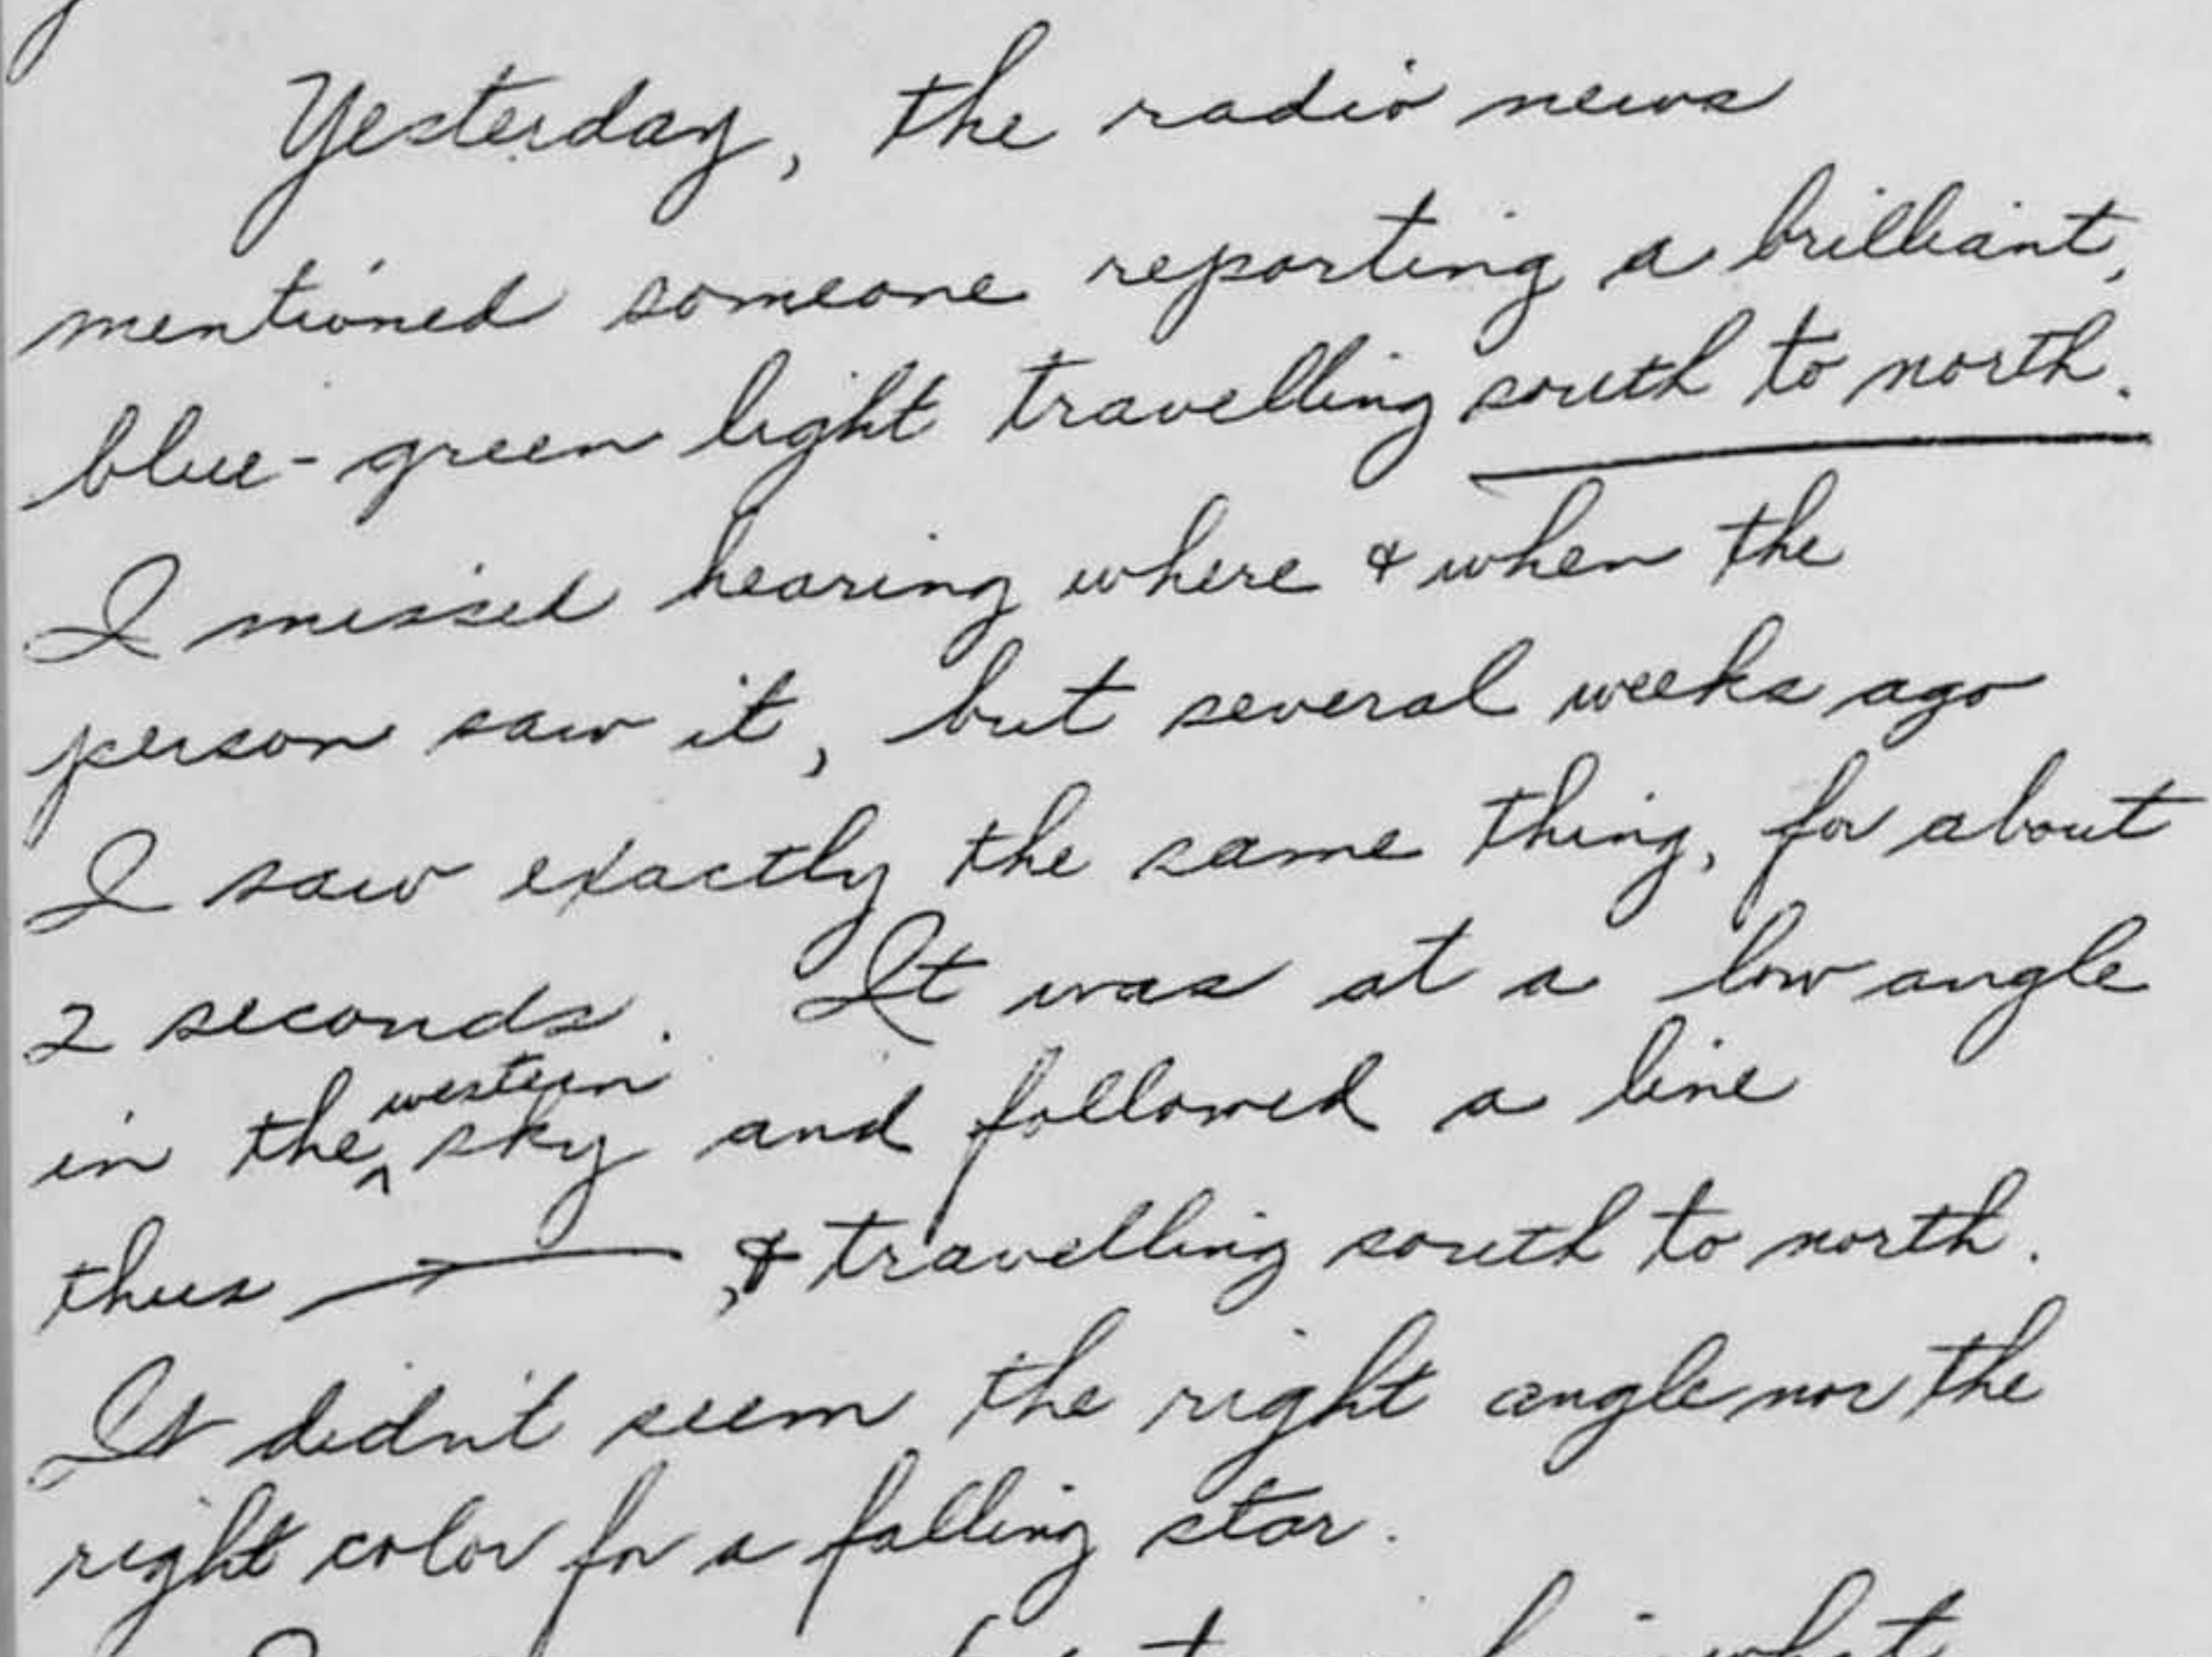 Yesterday, the radio news
mentioned someone reporting a brilliant,
blue-green light travelling south to north.
I missed hearing where & when the
person saw it, but several weeks ago
I saw exactly the same thing, for about
2 seconds. It was at a low angle
in the western sky and followed a line
thus , & travelling south to north.
It didn't seem the right angle nor the
right color for a falling star.
what